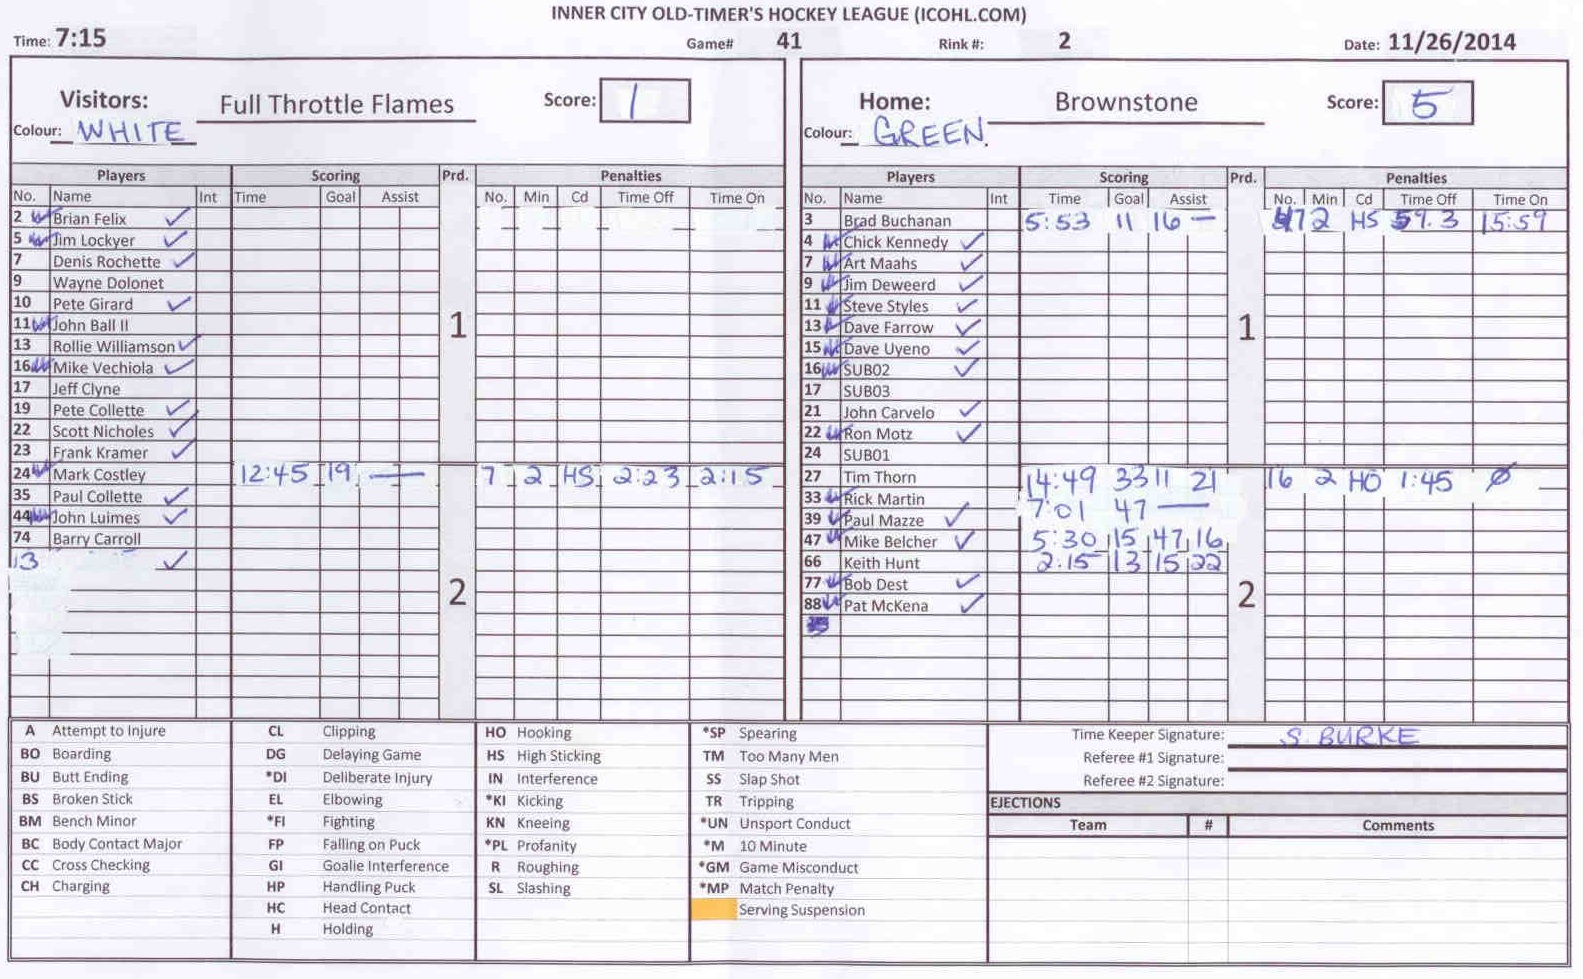 INNER CITY OLD-TIMER'S HOCKEY LEAGUE (ICOHL.COM)
Time: 7:15 Game# 41 Rink #: 2 Date: 11/26/2014
Visitors: Full Throttle Flames Score: 1
Colour: WHITE
Players Scoring Prd. Penalties
No. Name Int Time Goal Assist No. Min Cd Time Off Time On
2 Brian Felix ✓
5 Jim Lockyer ✓
7 Denis Rochette ✓
9 Wayne Dolonet
10 Pete Girard ✓
11 John Ball II
1
13 Rollie Williamson ✓
16 Mike Vechiola ✓
17 Jeff Clyne
19 Pete Collette ✓
22 Scott Nicholes ✓
23 Frank Kramer ✓
24 Mark Costley 12:45 19 — 7 2 HS 2:23 2:15
35 Paul Collette ✓
44 John Luimes ✓
74 Barry Carroll
13 ✓
2
Home: Brownstone Score: 5
Colour: GREEN.
Players Scoring Prd. Penalties
No. Name Int Time Goal Assist No. Min Cd Time Off Time On
3 Brad Buchanan 5:53 11 16 — 47 2 HS 59.3 15:59
4 Chick Kennedy ✓
7 Art Maahs ✓
9 Jim Deweerd ✓
11 Steve Styles ✓
13 Dave Farrow ✓
1
15 Dave Uyeno ✓
16 SUB02 ✓
17 SUB03
21 John Carvelo ✓
22 Ron Motz ✓
24 SUB01
27 Tim Thorn 14:49 33 11 21 16 2 HO 1:45 Ø
33 Rick Martin 7:01 47 —
39 Paul Mazze ✓
47 Mike Belcher ✓ 5:30 15 47 16
66 Keith Hunt 2:15 13 15 22
77 Bob Dest ✓
88 Pat McKena ✓
2
A Attempt to Injure
BO Boarding
BU Butt Ending
BS Broken Stick
BM Bench Minor
BC Body Contact Major
CC Cross Checking
CH Charging
CL Clipping
DG Delaying Game
*DI Deliberate Injury
EL Elbowing
*FI Fighting
FP Falling on Puck
GI Goalie Interference
HP Handling Puck
HC Head Contact
H Holding
HO Hooking
HS High Sticking
IN Interference
*KI Kicking
KN Kneeing
*PL Profanity
R Roughing
SL Slashing
*SP Spearing
TM Too Many Men
SS Slap Shot
TR Tripping
*UN Unsport Conduct
*M 10 Minute
*GM Game Misconduct
*MP Match Penalty
Serving Suspension
Time Keeper Signature: S. BURKE
Referee #1 Signature:
Referee #2 Signature:
EJECTIONS
Team # Comments